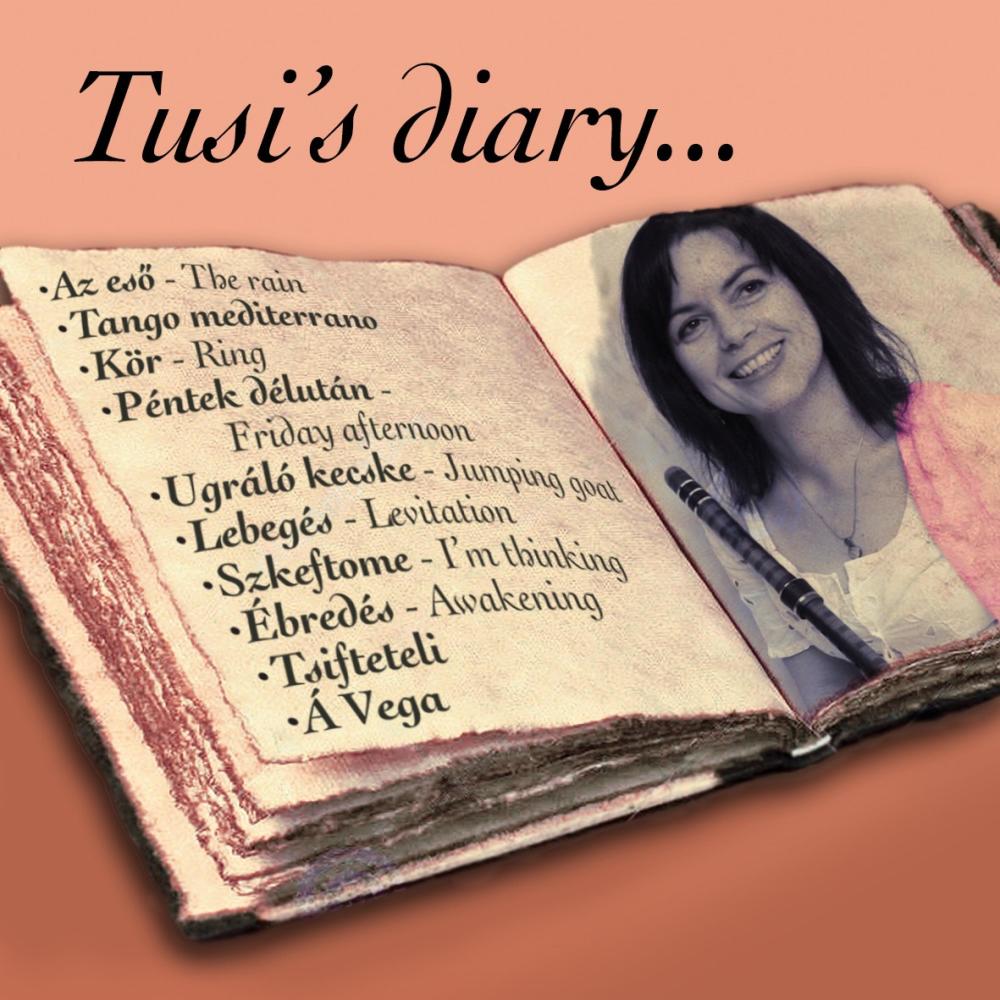 Tusi's diary...
•Az eső - The rain
•Tango mediterrano
•Kör - Ring
•Péntek délután -
Friday afternoon
•Ugráló kecske - Jumping goat
•Lebegés - Levitation
•Szkeftome - I'm thinking
•Ébredés - Awakening
•Tsifteteli
•Á Vega